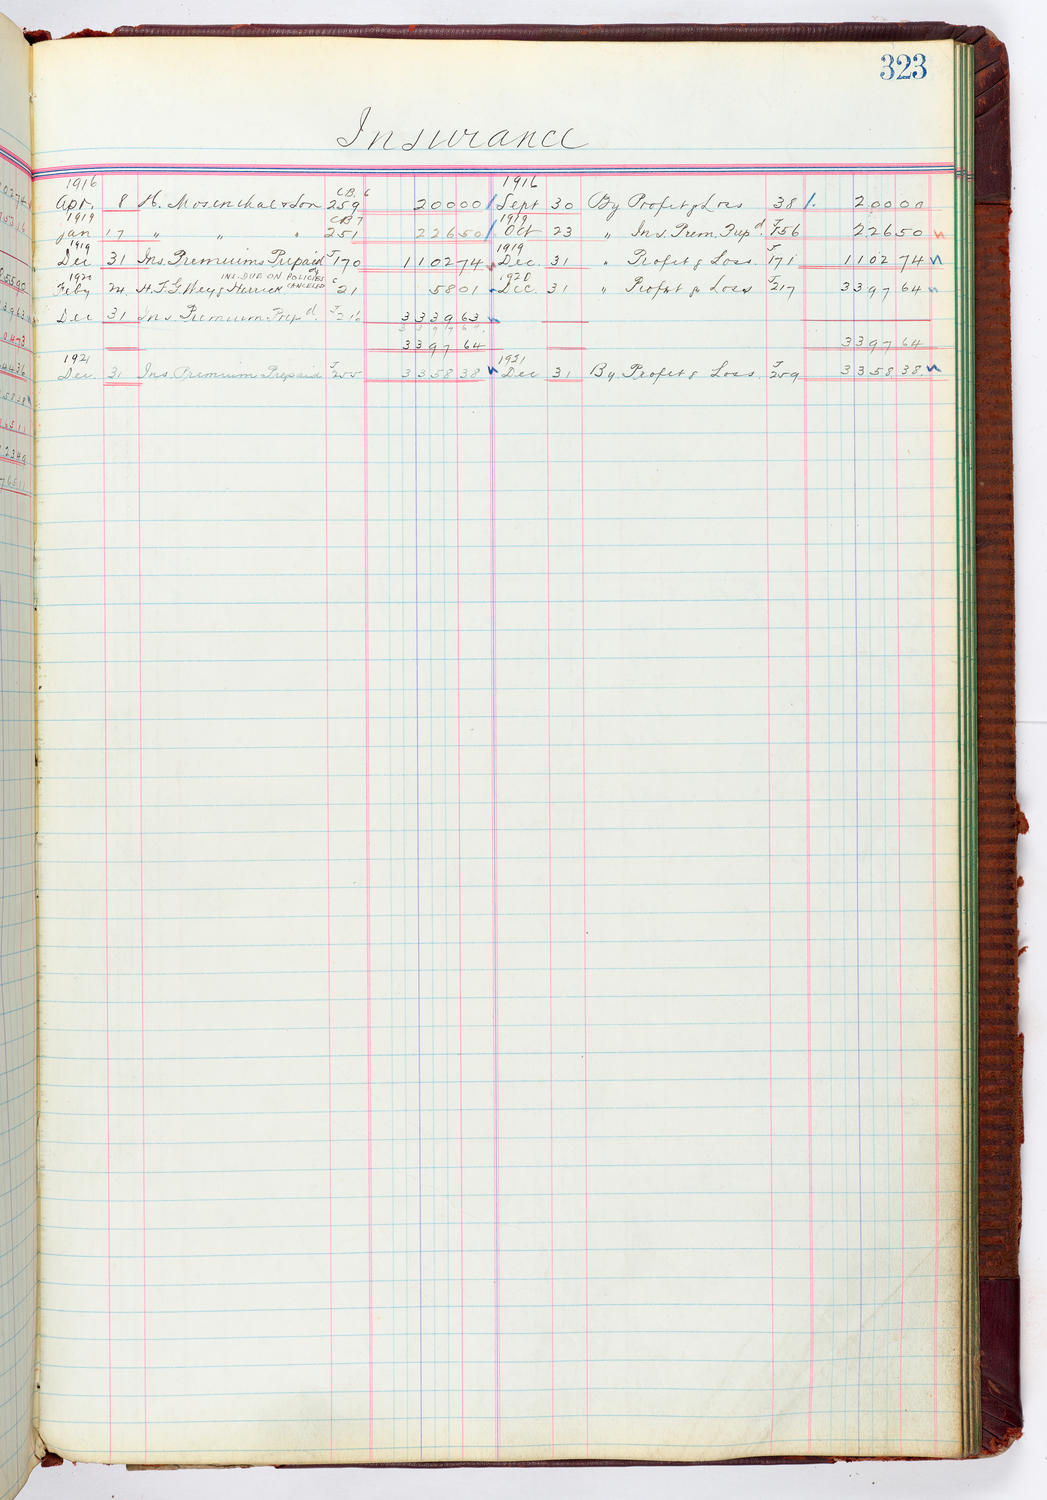 323
Insurance
1916 C.B. 6 1916
Apr. 8 H. Mosenthal & Son 259 200 00 Sept 30 By Profit & Loss 38 200 00
1919 CB 7 1919
Jan 17 " " " 251 226 50 Oct 23 " Ins. Prem. Prep'd. J56 226 50
1919 1919 J
Dec 31 Ins. Premiums Prepaid J170 1102 74 Dec. 31 " Profit & Loss. 171 1102 74
1920 INS. DUE ON POLICIES 1920
Feby 24 H. F. G. Wey & Herrick CANCELED C21 58 01 Dec. 31 " Profit & Loss J217 3397 64
Dec 31 Ins Premium Prep'd. J216 3339 63
3397 64
3397 64 3397 64
1921 1921
Dec. 31 Ins. Premium Prepaid J255 3358 38 Dec 31 By Profit & Loss. J259 3358 38